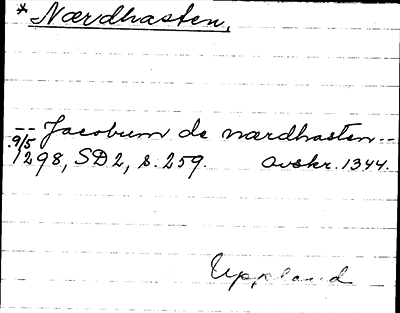 * Nærdhasten,
-- Jacobum de nærdhasten --
9/5
1298, SD2, s. 259. avskr. 1344.
Uppland